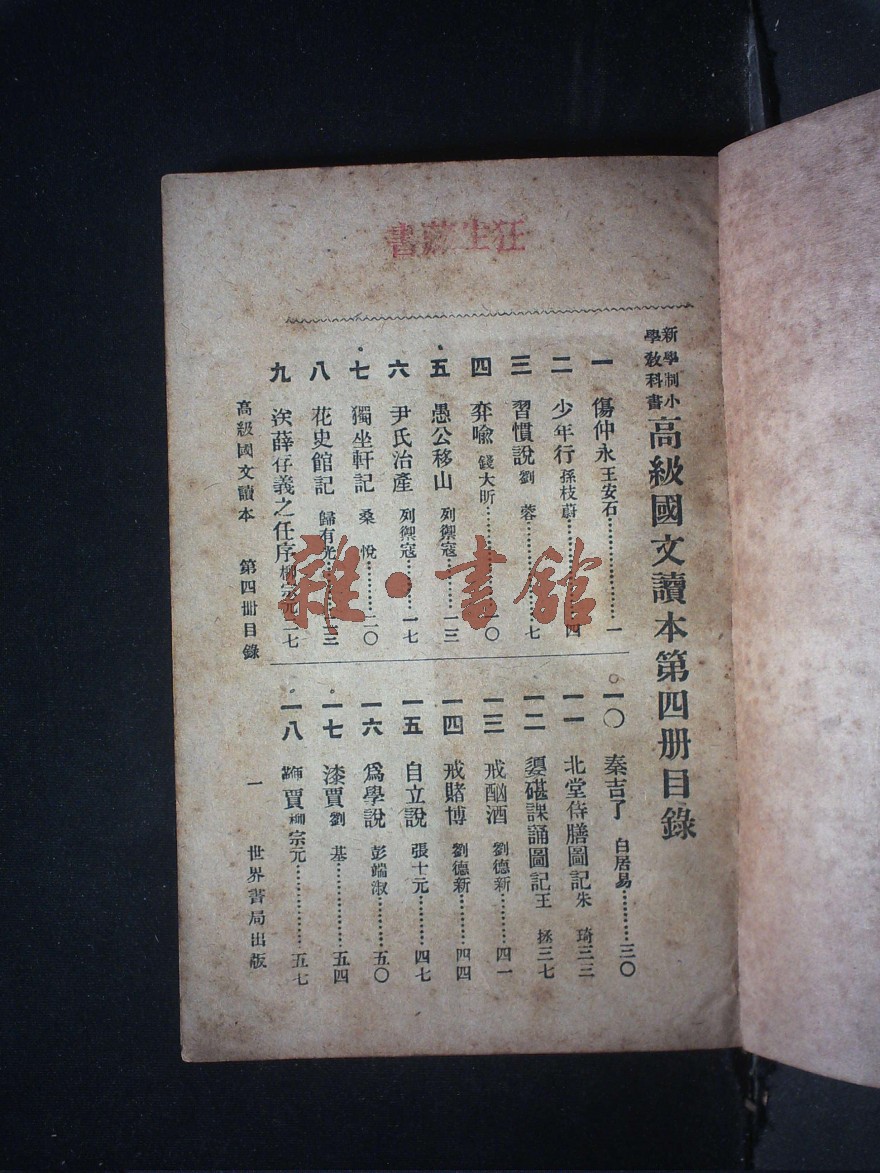 狂生藏書
新學制小
學教科書
高級國文讀本第四册目錄
一 傷仲永 王安石………………一
二 少年行 孫枝蔚………………四
三 習慣說 劉 蓉………………七
四 弈喻 錢大昕………………一〇
五 愚公移山 列禦寇………一三
六 尹氏治產 列禦寇………一七
七 獨坐軒記 桑 悅………二〇
八 花史館記 歸有光………二三
九 送薛存義之任序 柳宗元 二七
一〇 秦吉了 白居易………三〇
一一 北堂侍膳圖記 朱 琦 三三
一二 媭碪課誦圖記 王 拯 三七
一三 戒酗酒 劉德新………四一
一四 戒賭博 劉德新………四四
一五 自立說 張士元………四七
一六 爲學說 彭端淑………五〇
一七 漆賈 劉 基………五四
一八 鞭賈 柳宗元………五七
高級國文讀本 第四冊目錄
一 世界書局出版
雜·書館